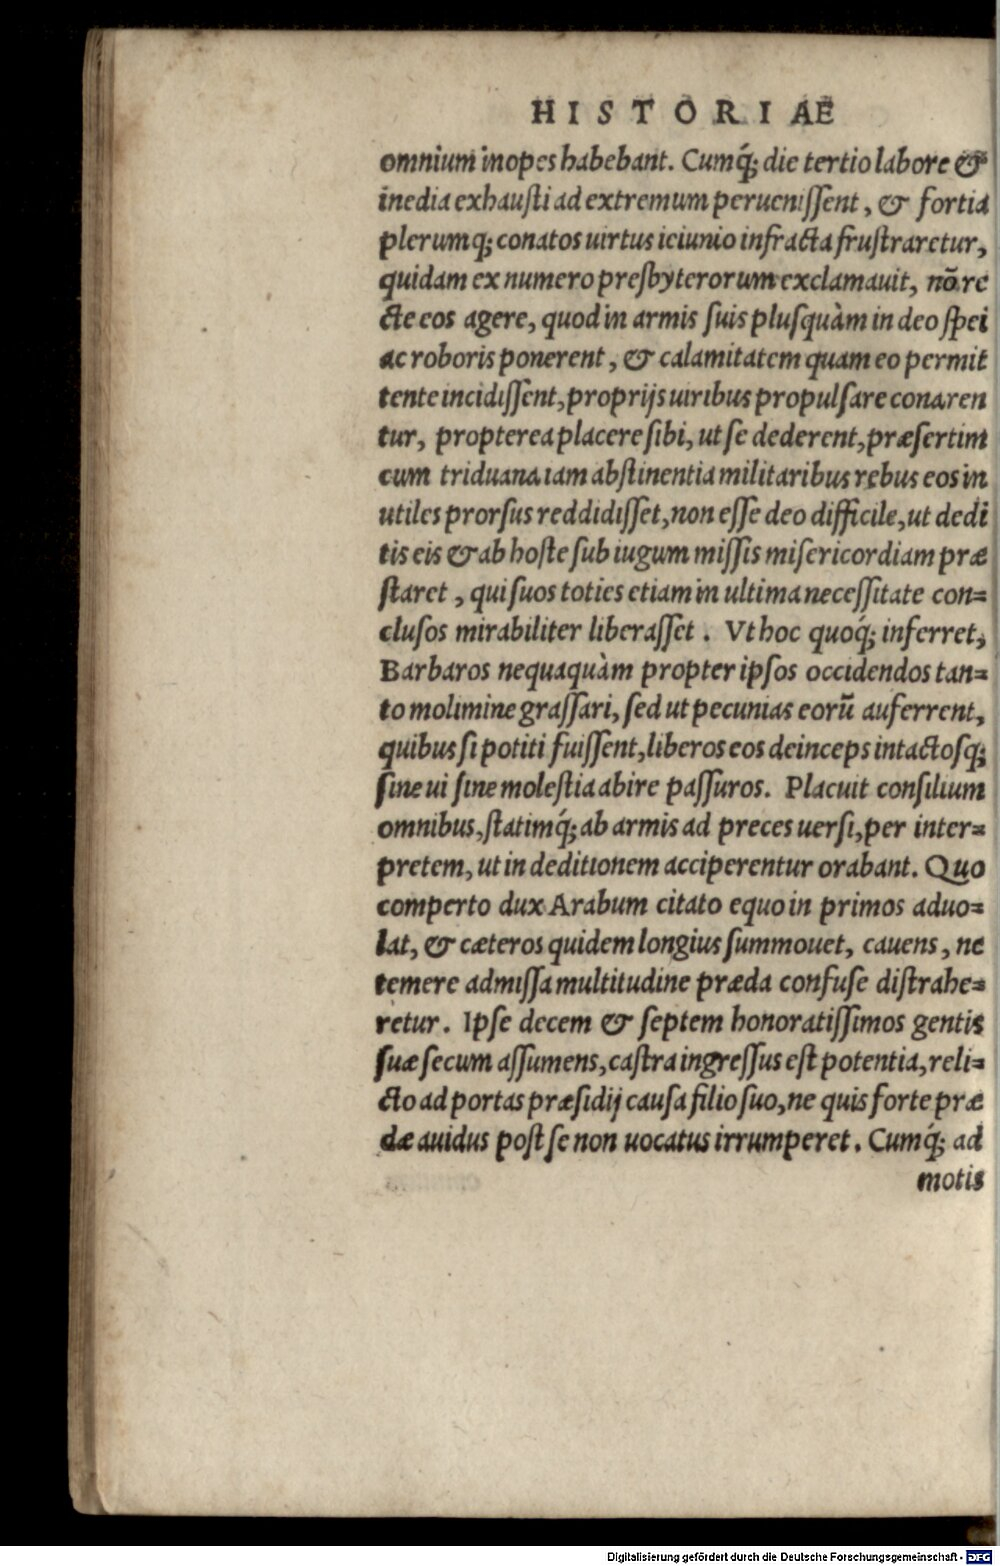 HISTORIAE
omnium inopes habebant. Cumq́; die tertio labore &
inedia exhausti ad extremum peruenissent, & fortia
plerumq; conatos uirtus ieiunio infracta frustraretur,
quidam ex numero presbyterorum exclamauit, nō re
cte eos agere, quod in armis suis plusquàm in deo spei
ac roboris ponerent, & calamitatem quam eo permit
tente incidissent, proprijs uiribus propulsare conaren
tur, propterea placere sibi, ut se dederent, præsertim
cum triduana iam abstinentia militaribus rebus eos in
utiles prorsus reddidisset, non esse deo difficile, ut dedi
tis eis & ab hoste sub iugum missis misericordiam præ
staret, qui suos toties etiam in ultima necessitate con=
clusos mirabiliter liberasset. Vt hoc quoq́; inferret,
Barbaros nequaquàm propter ipsos occidendos tan=
to molimine grassari, sed ut pecunias eorū auferrent,
quibus si potiti fuissent, liberos eos deinceps intactosq;
sine ui sine molestia abire passuros. Placuit consilium
omnibus, statimq́; ab armis ad preces uersi, per inter=
pretem, ut in deditionem acciperentur orabant. Quo
comperto dux Arabum citato equo in primos aduo=
lat, & cæteros quidem longius summouet, cauens, ne
temere admissa multitudine præda confuse distrahe=
retur. Ipse decem & septem honoratissimos gentis
suæ secum assumens, castra ingressus est potentia, reli=
cto ad portas præsidij causa filio suo, ne quis forte præ
dæ auidus post se non uocatus irrumperet. Cumq́; ad
motis
Digitalisierung gefördert durch die Deutsche Forschungsgemeinschaft - DFG